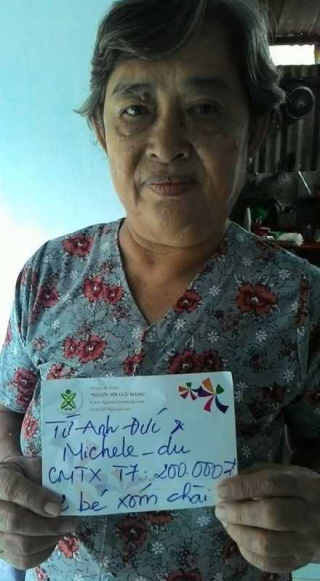 "NGƯỜI TÔI CƯU MANG"
Từ-Anh-Đức &
Michele-du
CMTX T7: 200.000đ
bé xóm chài